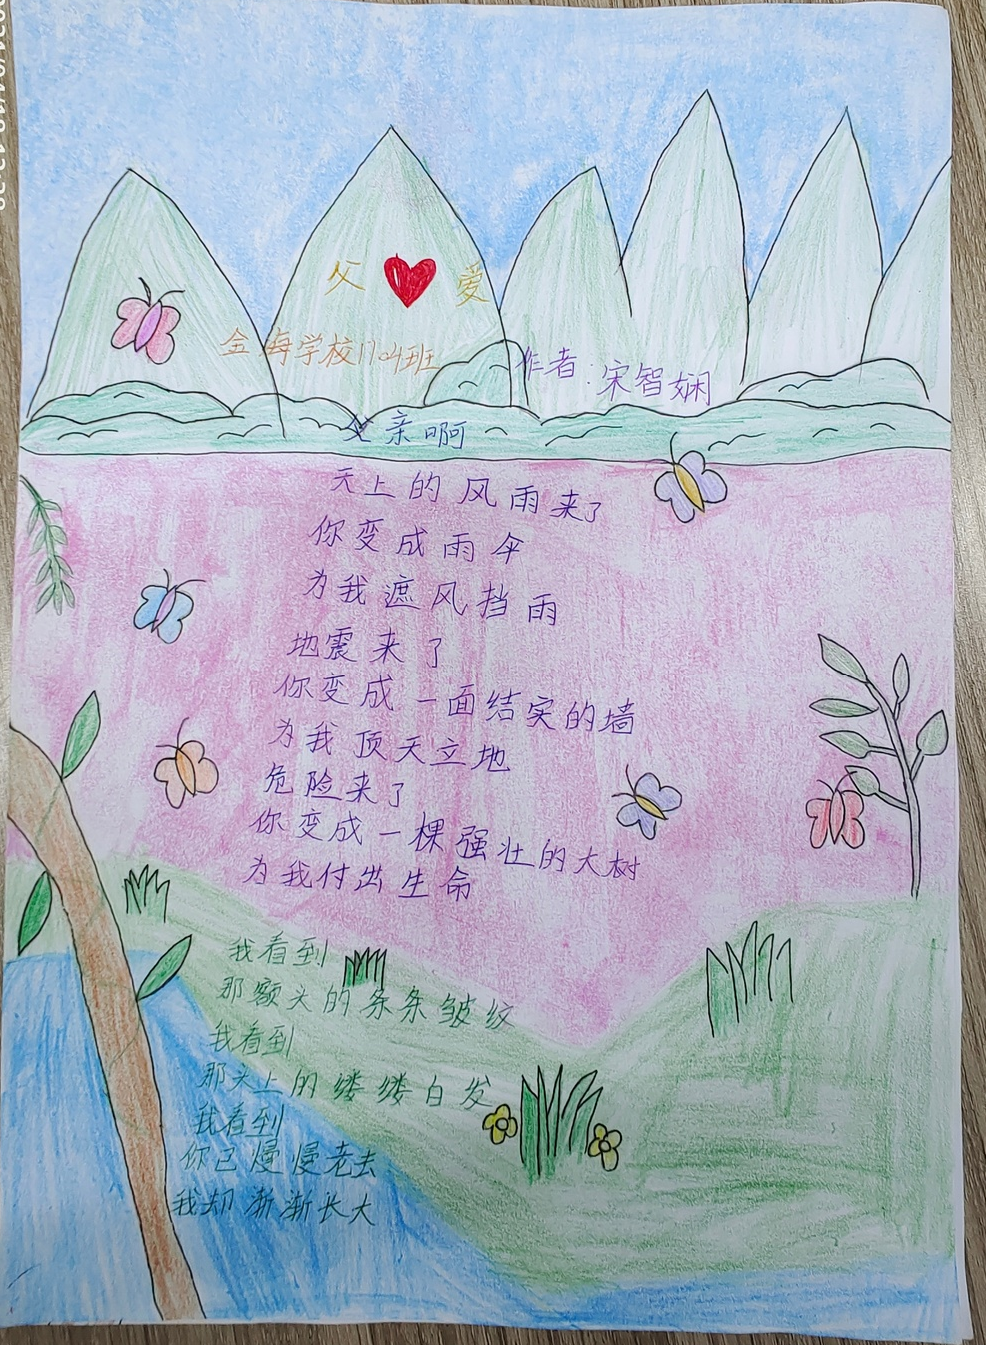 父 爱
金海学校1704班 作者:宋智娴
父亲啊
天上的风雨来了
你变成雨伞
为我遮风挡雨
地震来了
你变成一面结实的墙
为我顶天立地
危险来了
你变成一棵强壮的大树
为我付出生命
我看到
那额头的条条皱纹
我看到
那头上的缕缕白发
我看到
你已慢慢老去
我却渐渐长大